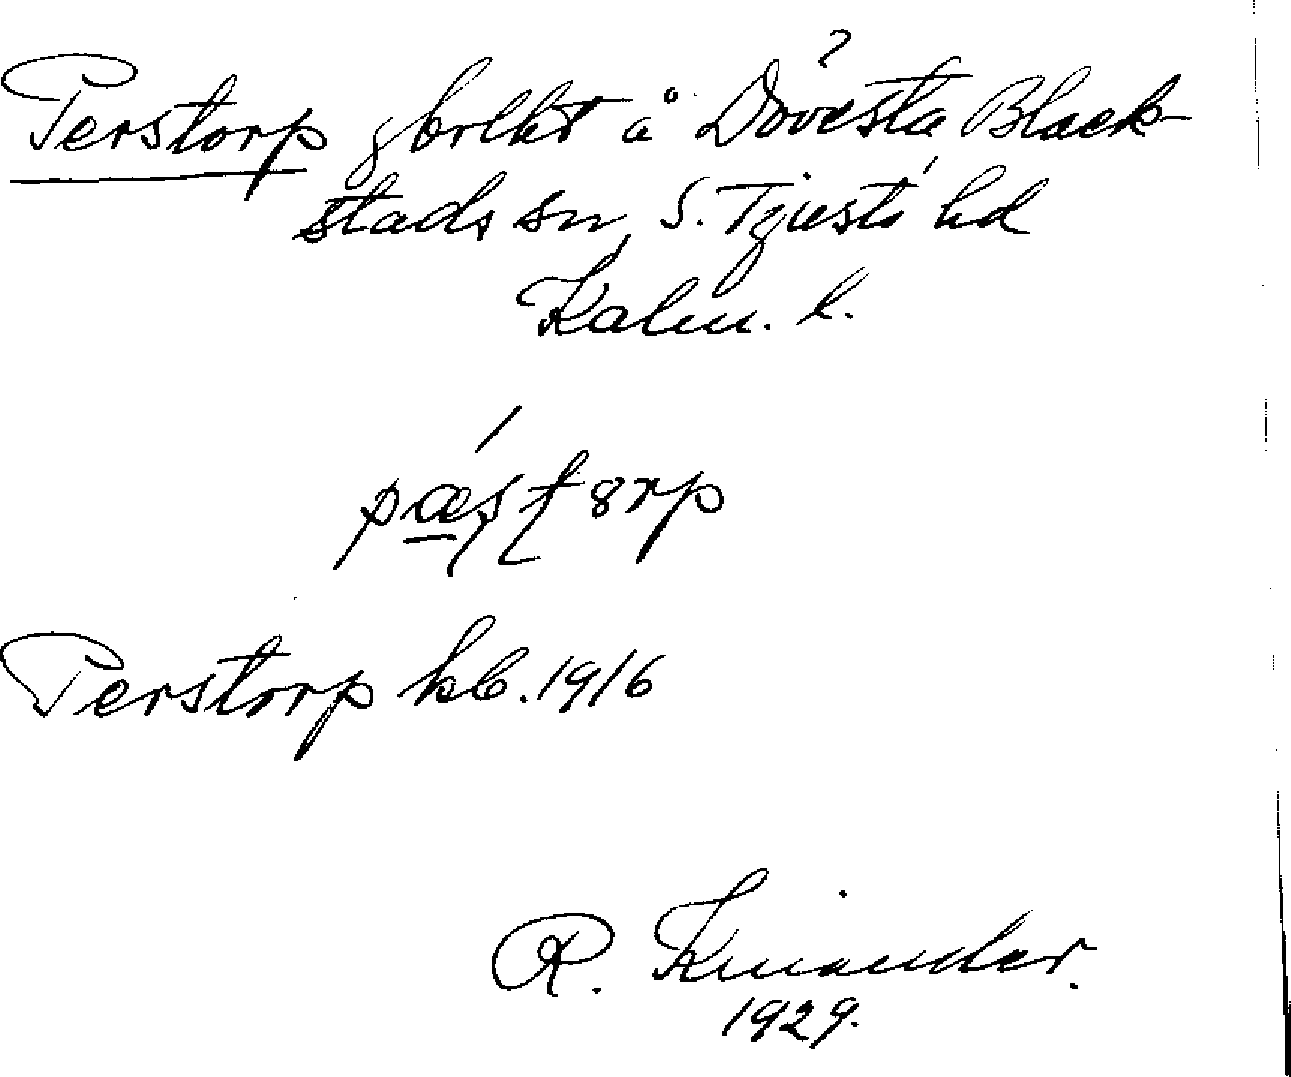 ?
Perstorp gbrlht å Dovesta Black-
stads sn, S. Tjust's hd
Kalm. l.
pæs̩t8rp
Perstorp kb. 1916
R. Kinander.
1929.